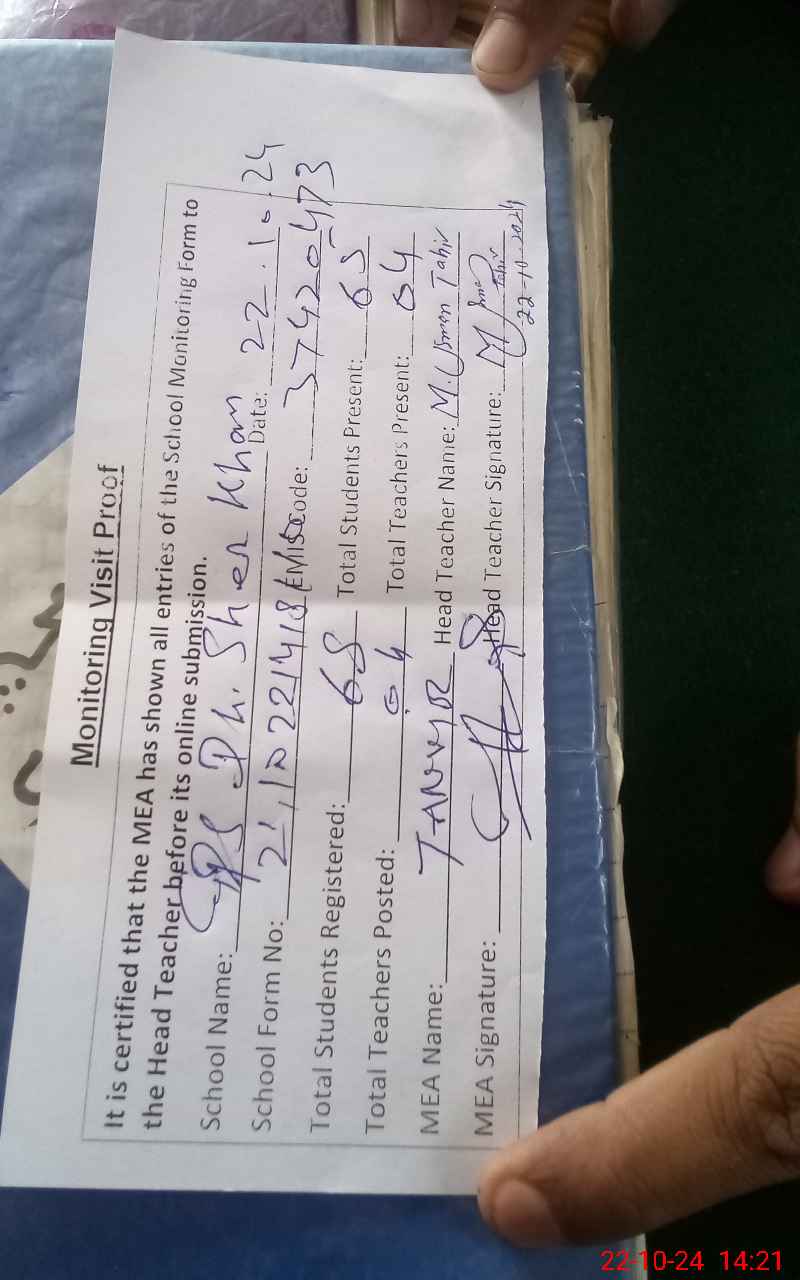 Monitoring Visit Proof
It is certified that the MEA has shown all entries of the School Monitoring Form to
the Head Teacher before its online submission.
School Name: GPS Dh. Sher Kham Date: 22.10.24
School Form No: EMIS Code: 37420473
Total Students Registered: 68 Total Students Present: 65
Total Teachers Posted: 04 Total Teachers Present: 04
MEA Name: TANVIR Head Teacher Name: M. Usman Tahir
MEA Signature: Head Teacher Signature: M Usma Tahir
22-10-2024
22-10-24 14:21